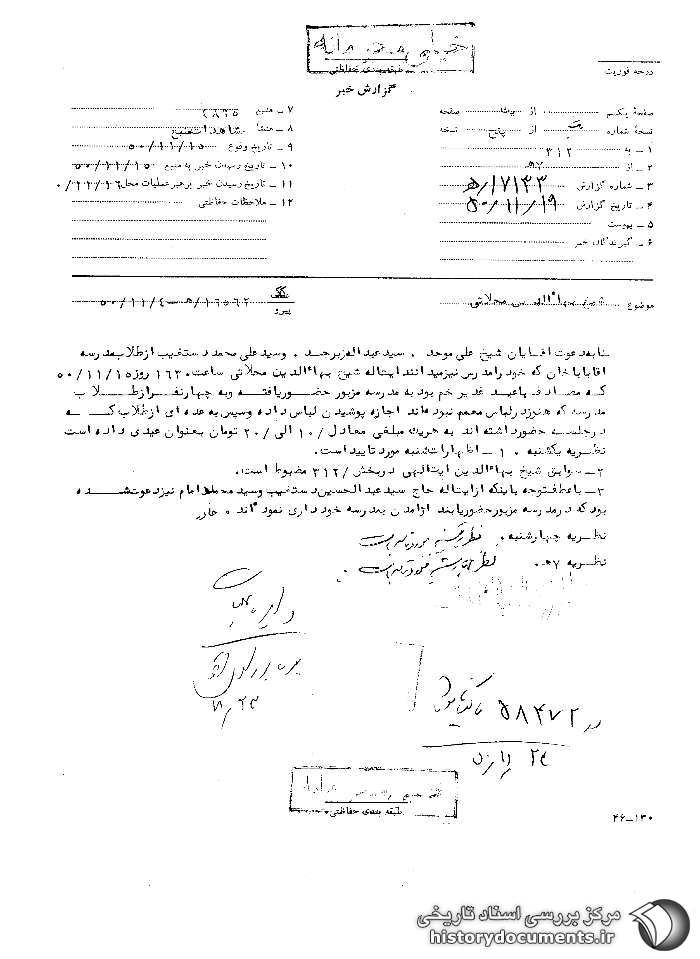 خیلی محرمانه
طبقه‌بندی حفاظتی
درجه فوریت
گزارش خبر
صفحهٔ یکم از یک صفحه
نسخهٔ شماره از پنج نسخه
۱ ـ به ۳۱۲
۲ ـ از ۷ه
۳ ـ شماره گزارش ۷۱۳۳/ه
۴ ـ تاریخ گزارش ۵۰/۱۱/۱۹
۵ ـ پیوست
۶ ـ گیرندگان خبر
۷ ـ منبع
۸ ـ منشأ مشاهدات منبع
۹ ـ تاریخ وقوع ۵۰/۱۱/۱۵
۱۰ ـ تاریخ رسیدن خبر به منبع ۵۰/۱۱/۱۵
۱۱ ـ تاریخ رسیدن خبر برهبر عملیات محل
۱۲ ـ ملاحظات حفاظتی
موضوع شیخ بهاءالدین محلاتی
پیرو ۱۶۵۶۲/ه‍ ـ ۵۰/۱۱/۴
بنا به دعوت آقایان شیخ علی موحد . سید عبداله زبرجد . وسید علی محمد دستغیب از طلاب مدرسه
آقاباباخان که خود را مدرس نیز میدانند ایت‌اله شیخ بهاءالدین محلاتی ساعت ۱۶۳۰ روز ۵۰/۱۱/۱۵
که مصادف با عید غدیر خم بود به مدرسه مزبور حضور یافته و به چهار نفر از طلاب
مدرسه که هنوز در لباس معمم نبوده‌اند اجازه پوشیدن لباس داده وسپس به عده ای از طلاب که
در جلسه حضور داشته‌اند به هریک مبلغی معادل ۱۰/ الی ۲۰/ تومان بعنوان عیدی داده است
نظریه یکشنبه . ۱ ـ اظهارات شنبه مورد تایید است.
۲ ـ سوابق شیخ بهاءالدین ایت‌الهی در بخش ۳۱۲/ مضبوط است.
۳ ـ با عطف توجه باینکه از ایت‌اله حاج سید عبدالحسین دستغیب وسید محمد امام نیز دعوت شده
بود که در مدرسه مزبور حضور یابند از آمدن بمدرسه خود داری نموده‌اند .
نظریه چهارشنبه . نظریه یکشنبه مورد تایید است
نظریه ۷ه‍ .
در ۵۸۴۷۲ بایگانی شود
۲۴
طبقه بندی حفاظتی
۴۶ـ۱۳۰
مرکز بررسی اسناد تاریخی
historydocuments.ir